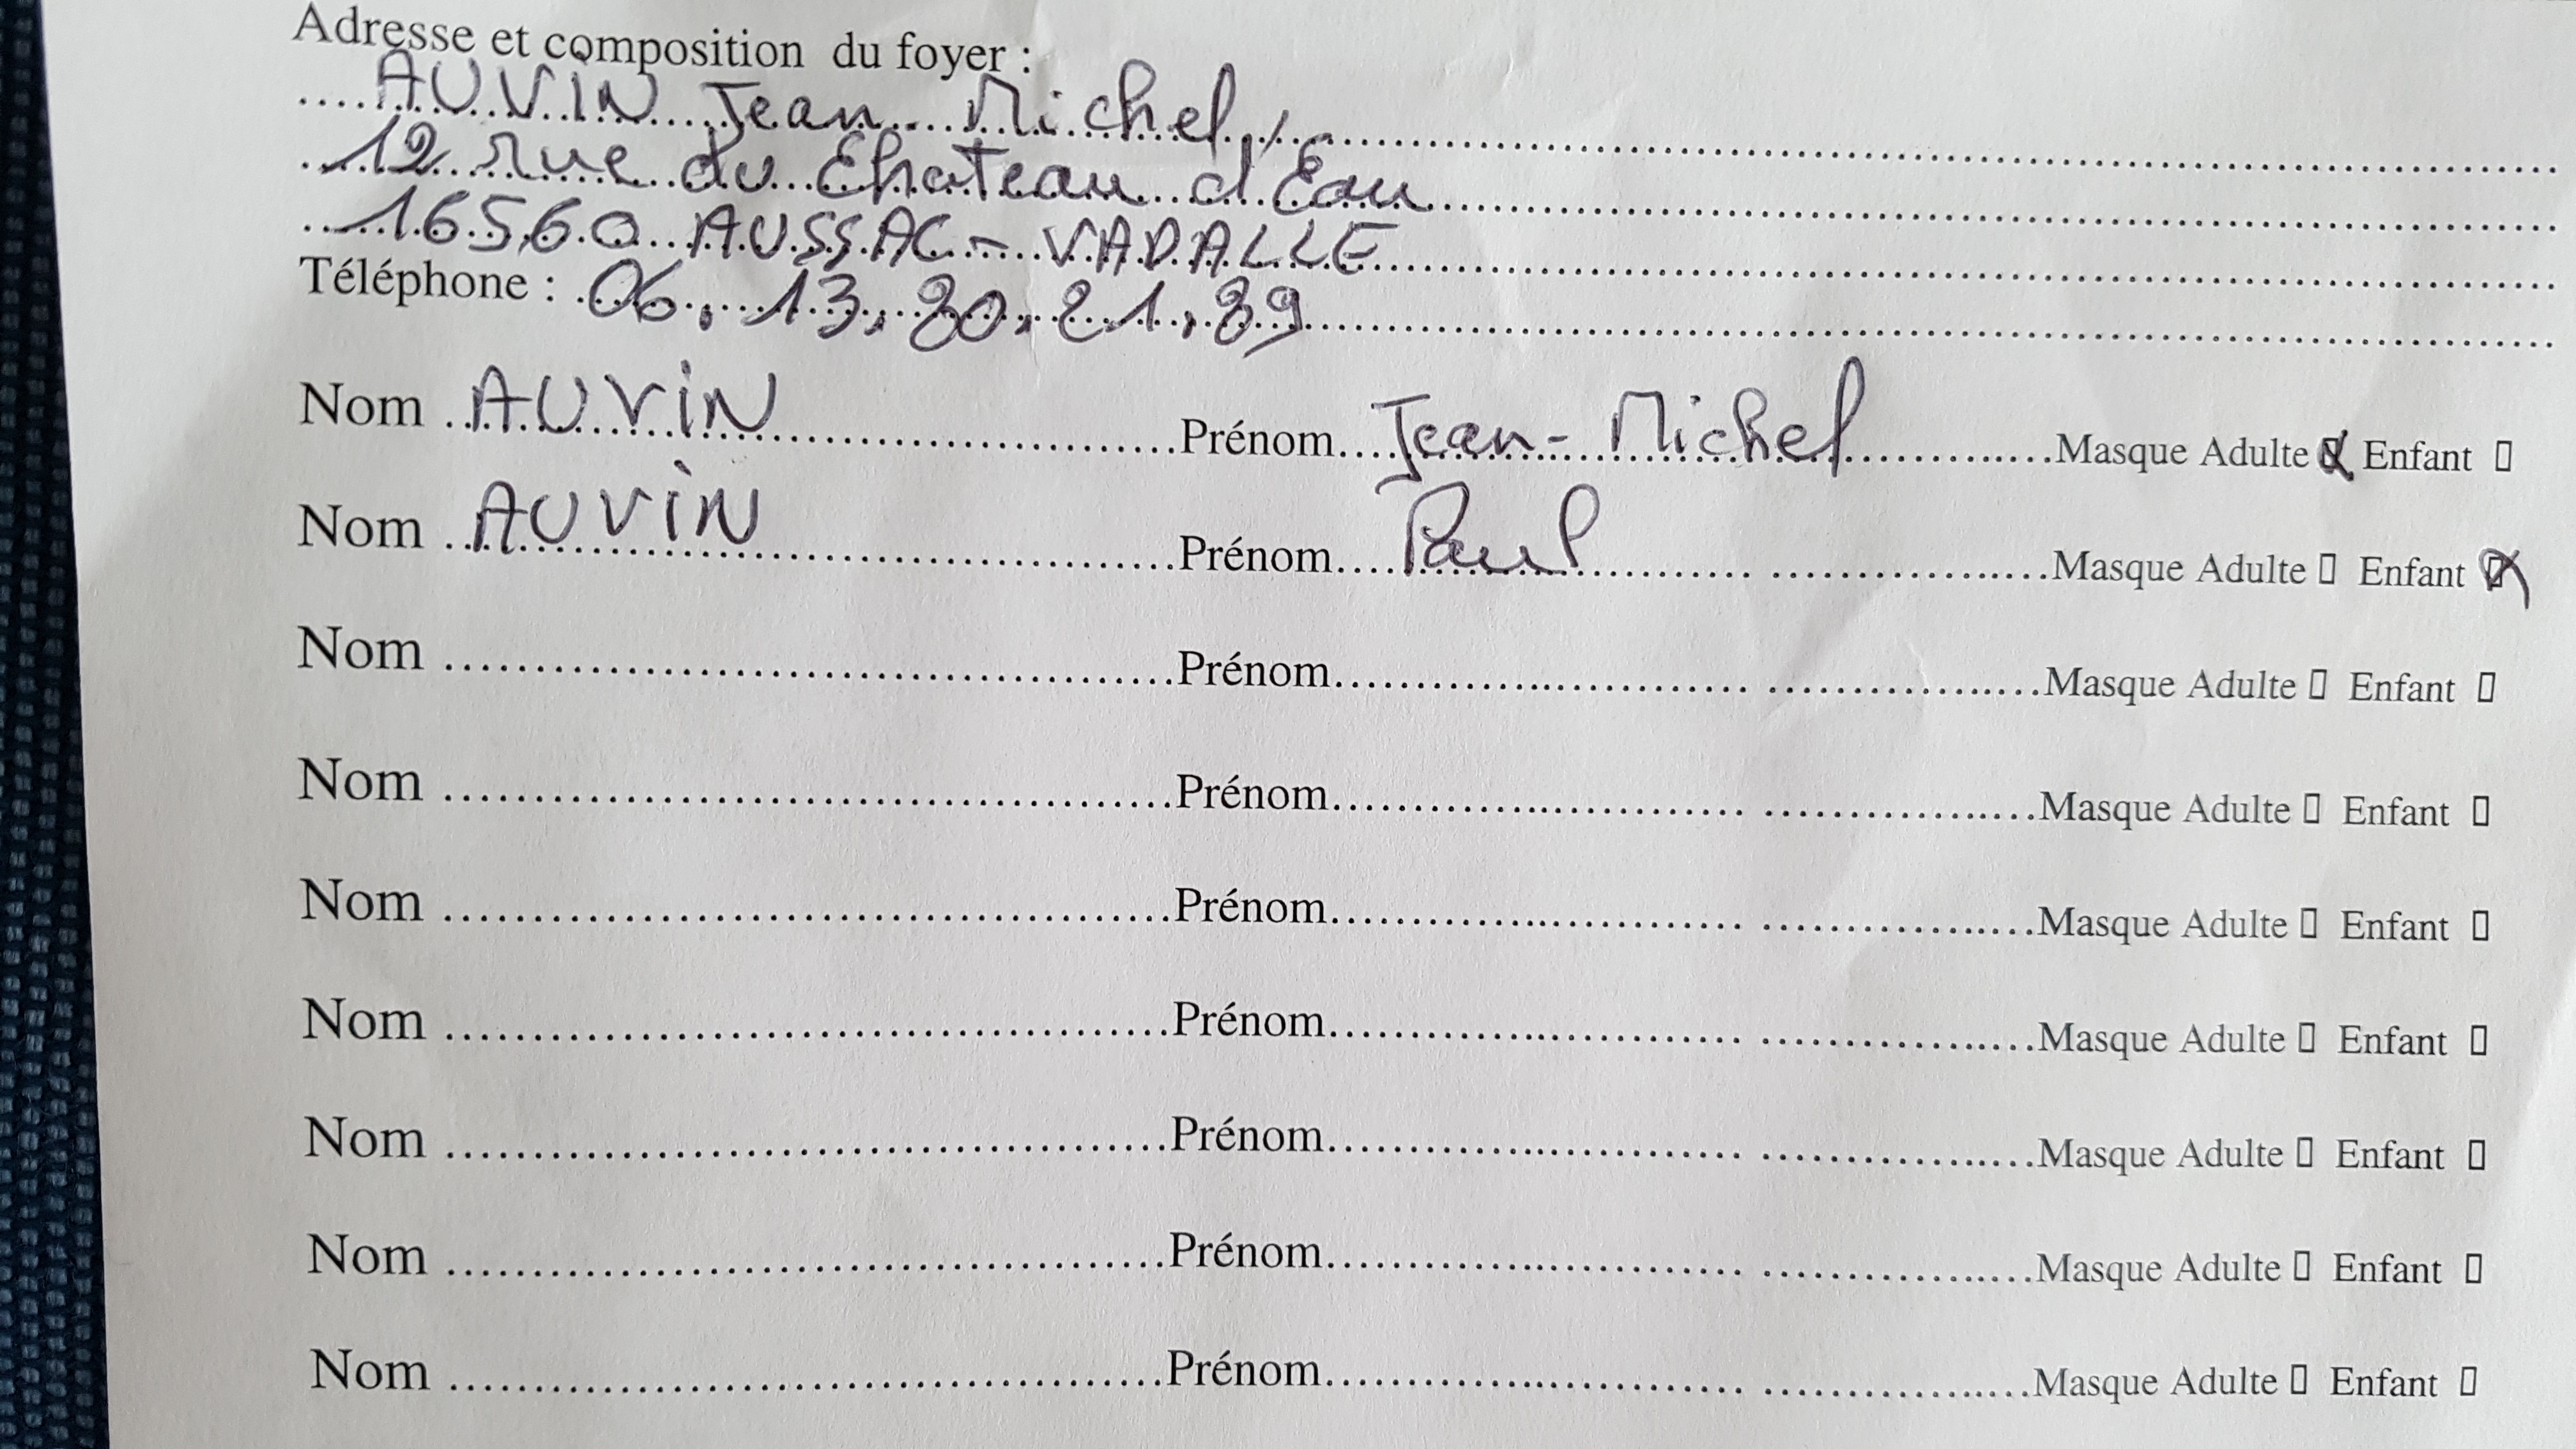 Adresse et composition du foyer :
....AUVIN Jean-Michel,
12 rue du Chateau d'Eau
16560 AUSSAC-VADALLE
Téléphone : 06.13.80.21.89
Nom AUVIN Prénom Jean-Michel Masque Adulte ☒ Enfant ▯
Nom AUVIN Prénom Paul Masque Adulte ▯ Enfant ☒
Nom ........ Prénom ........ Masque Adulte ▯ Enfant ▯
Nom ........ Prénom ........ Masque Adulte ▯ Enfant ▯
Nom ........ Prénom ........ Masque Adulte ▯ Enfant ▯
Nom ........ Prénom ........ Masque Adulte ▯ Enfant ▯
Nom ........ Prénom ........ Masque Adulte ▯ Enfant ▯
Nom ........ Prénom ........ Masque Adulte ▯ Enfant ▯
Nom ........ Prénom ........ Masque Adulte ▯ Enfant ▯